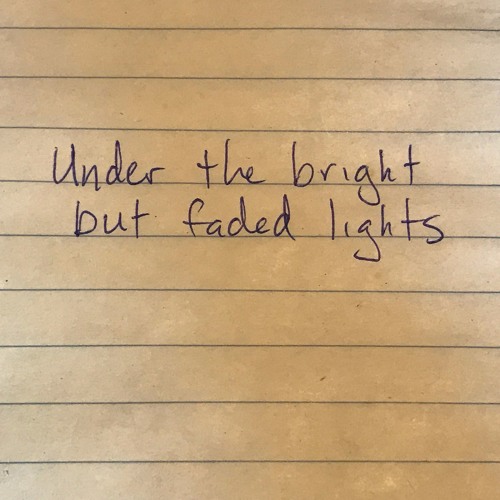 Under the bright
but faded lights